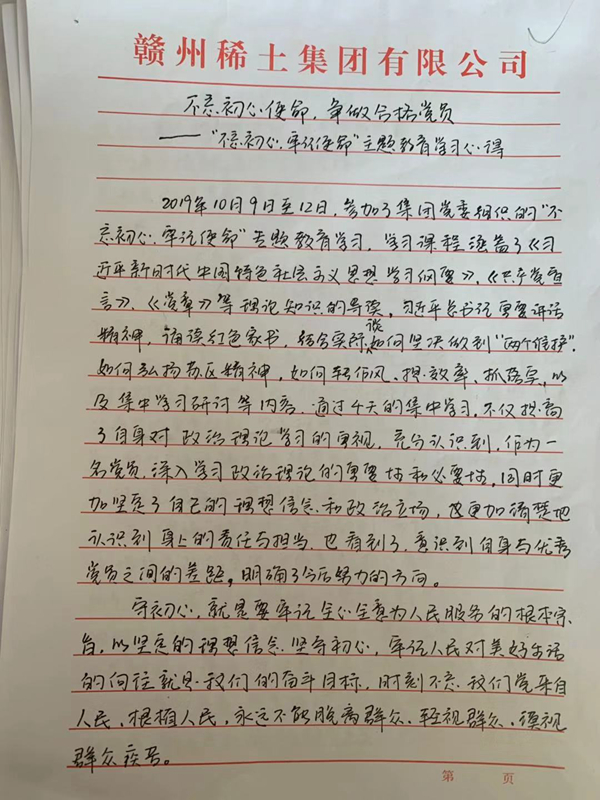 赣州稀土集团有限公司
不忘初心使命，争做合格党员
——“不忘初心、牢记使命”主题教育学习心得
2019年10月9日至12日，参加了集团党委组织的“不
忘初心、牢记使命”专题教育学习，学习课程涵盖了《习
近平新时代中国特色社会主义思想学习纲要》、《共产党宣
言》、《党章》等理论知识的导读，习近平总书记重要讲话
精神，诵读红色家书，结合实际谈如何坚决做到“两个维护”，
如何弘扬苏区精神，如何转作风、提效率、抓落实，以
及集中学习研讨等内容。通过4天的集中学习，不仅提高
了自身对政治理论学习的重视，充分认识到，作为一
名党员，深入学习政治理论的重要性和必要性，同时更
加坚定了自己的理想信念和政治立场，也更加清楚地
认识到身上的责任与担当，也看到了、意识到自身与优秀
党员之间的差距，明确了今后努力的方向。
守初心，就是要牢记全心全意为人民服务的根本宗
旨，以坚定的理想信念坚守初心，牢记人民对美好生活
的向往就是我们的奋斗目标，时刻不忘我们党来自
人民、根植人民，永远不能脱离群众、轻视群众、漠视
群众疾苦。
第 页